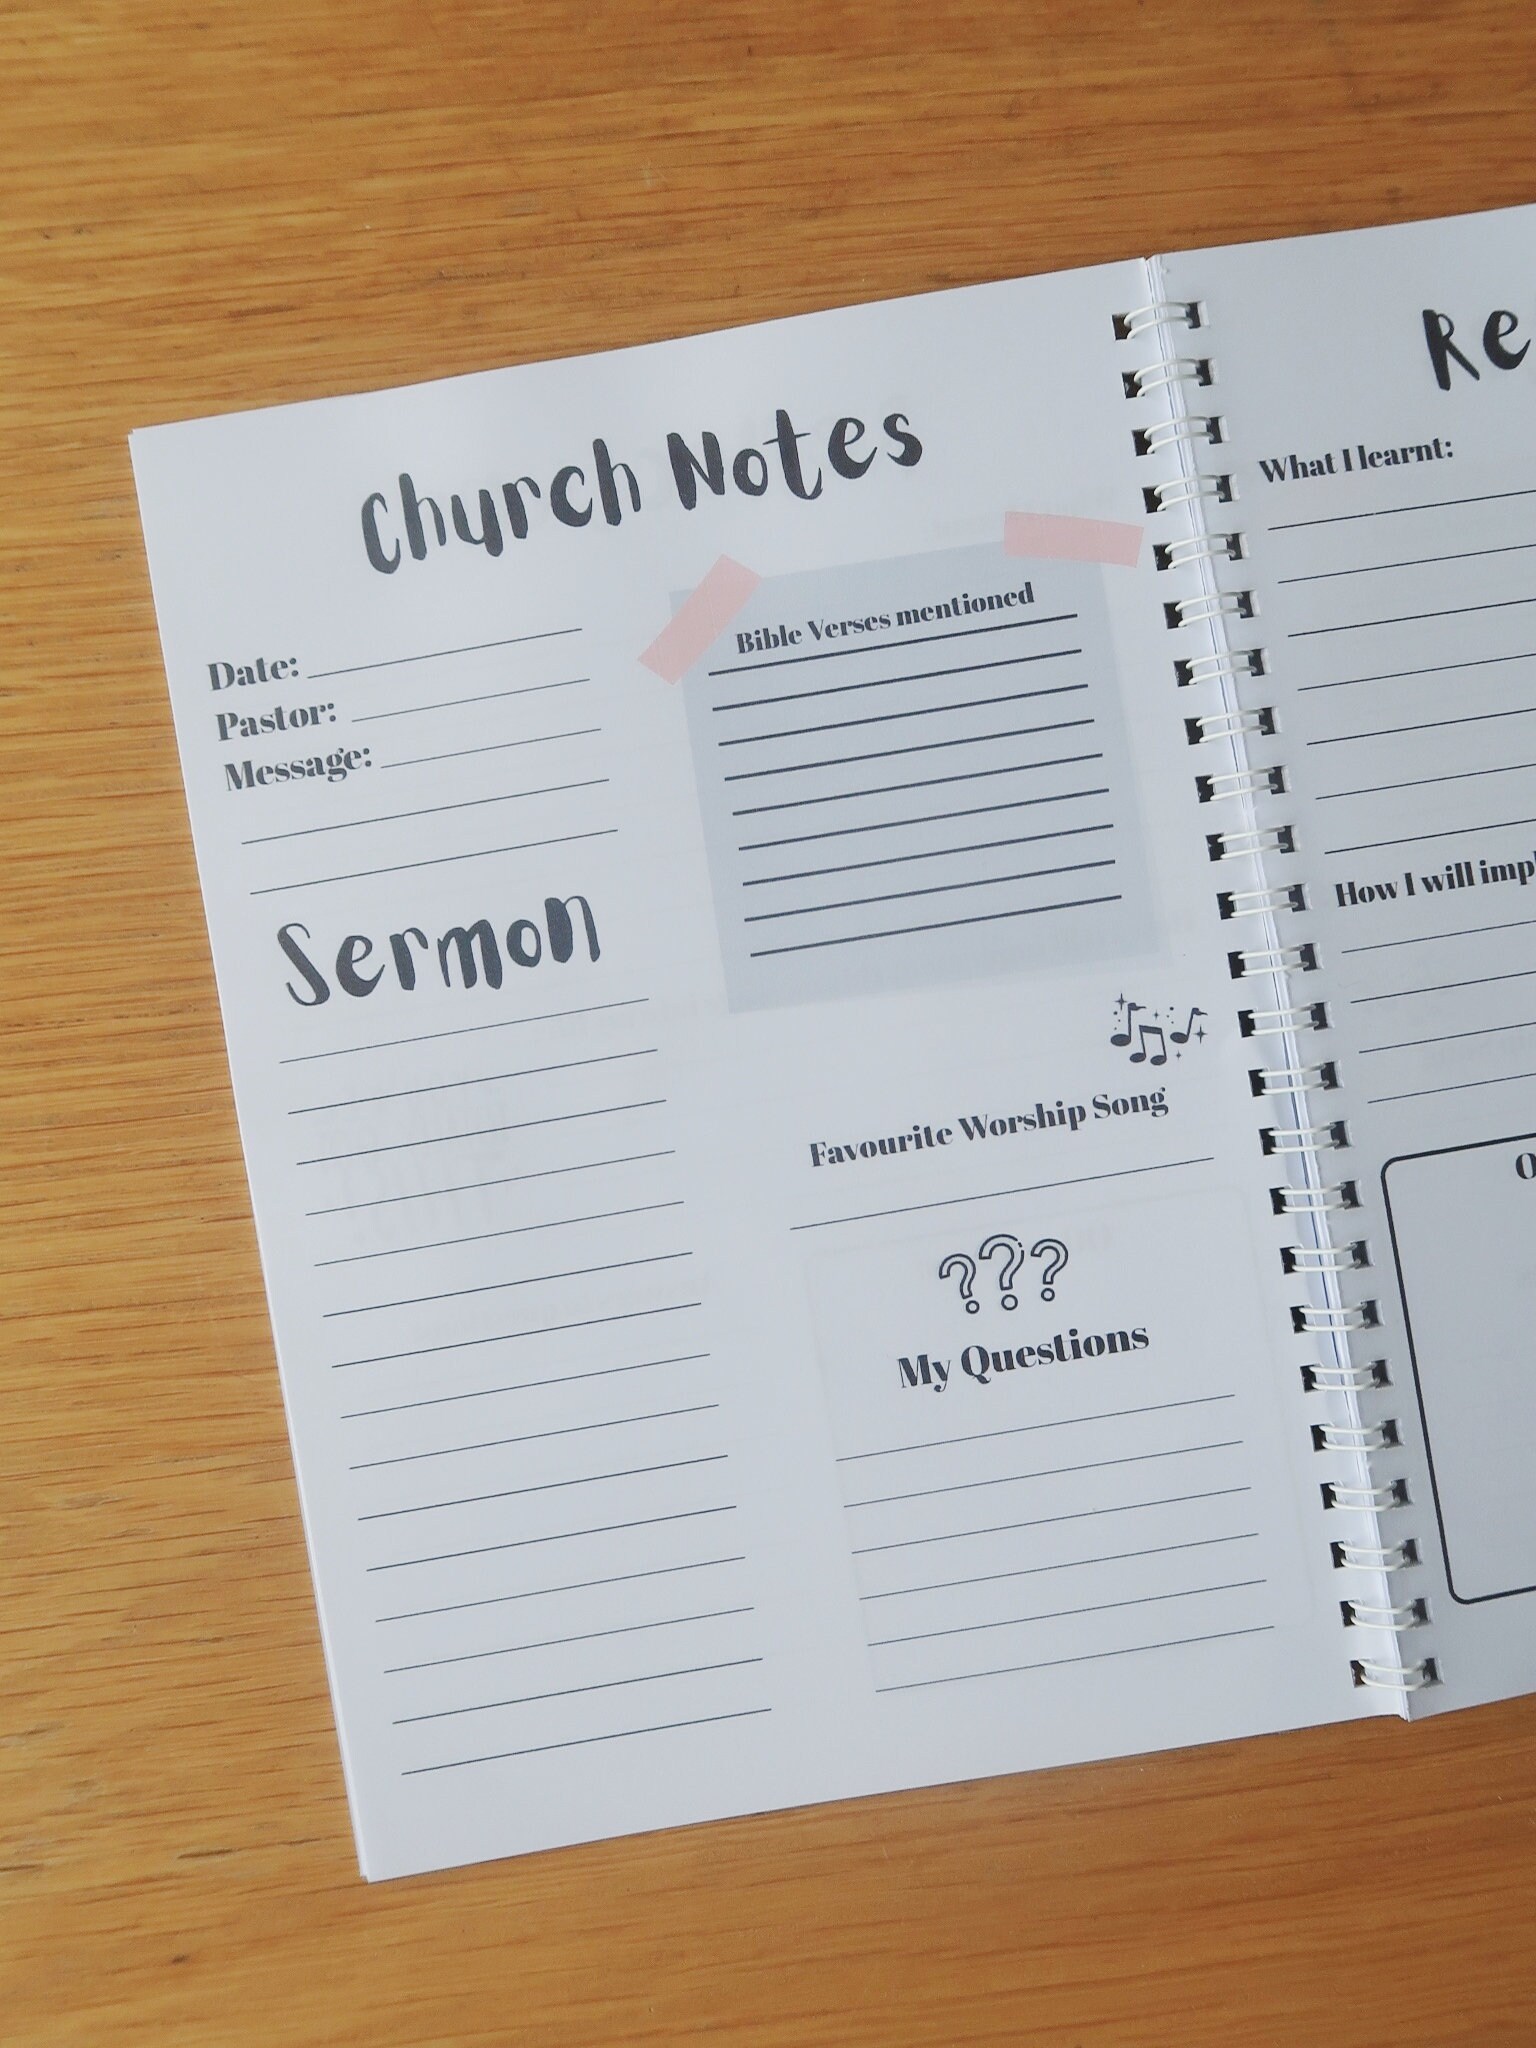 Church Notes
Date:
Pastor:
Message:
Bible Verses mentioned
Sermon
Favourite Worship Song
???
My Questions
Re
What I learnt:
How I will impl
O